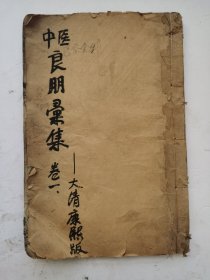 中医
良朋彙集
卷一、
—大清康熙版